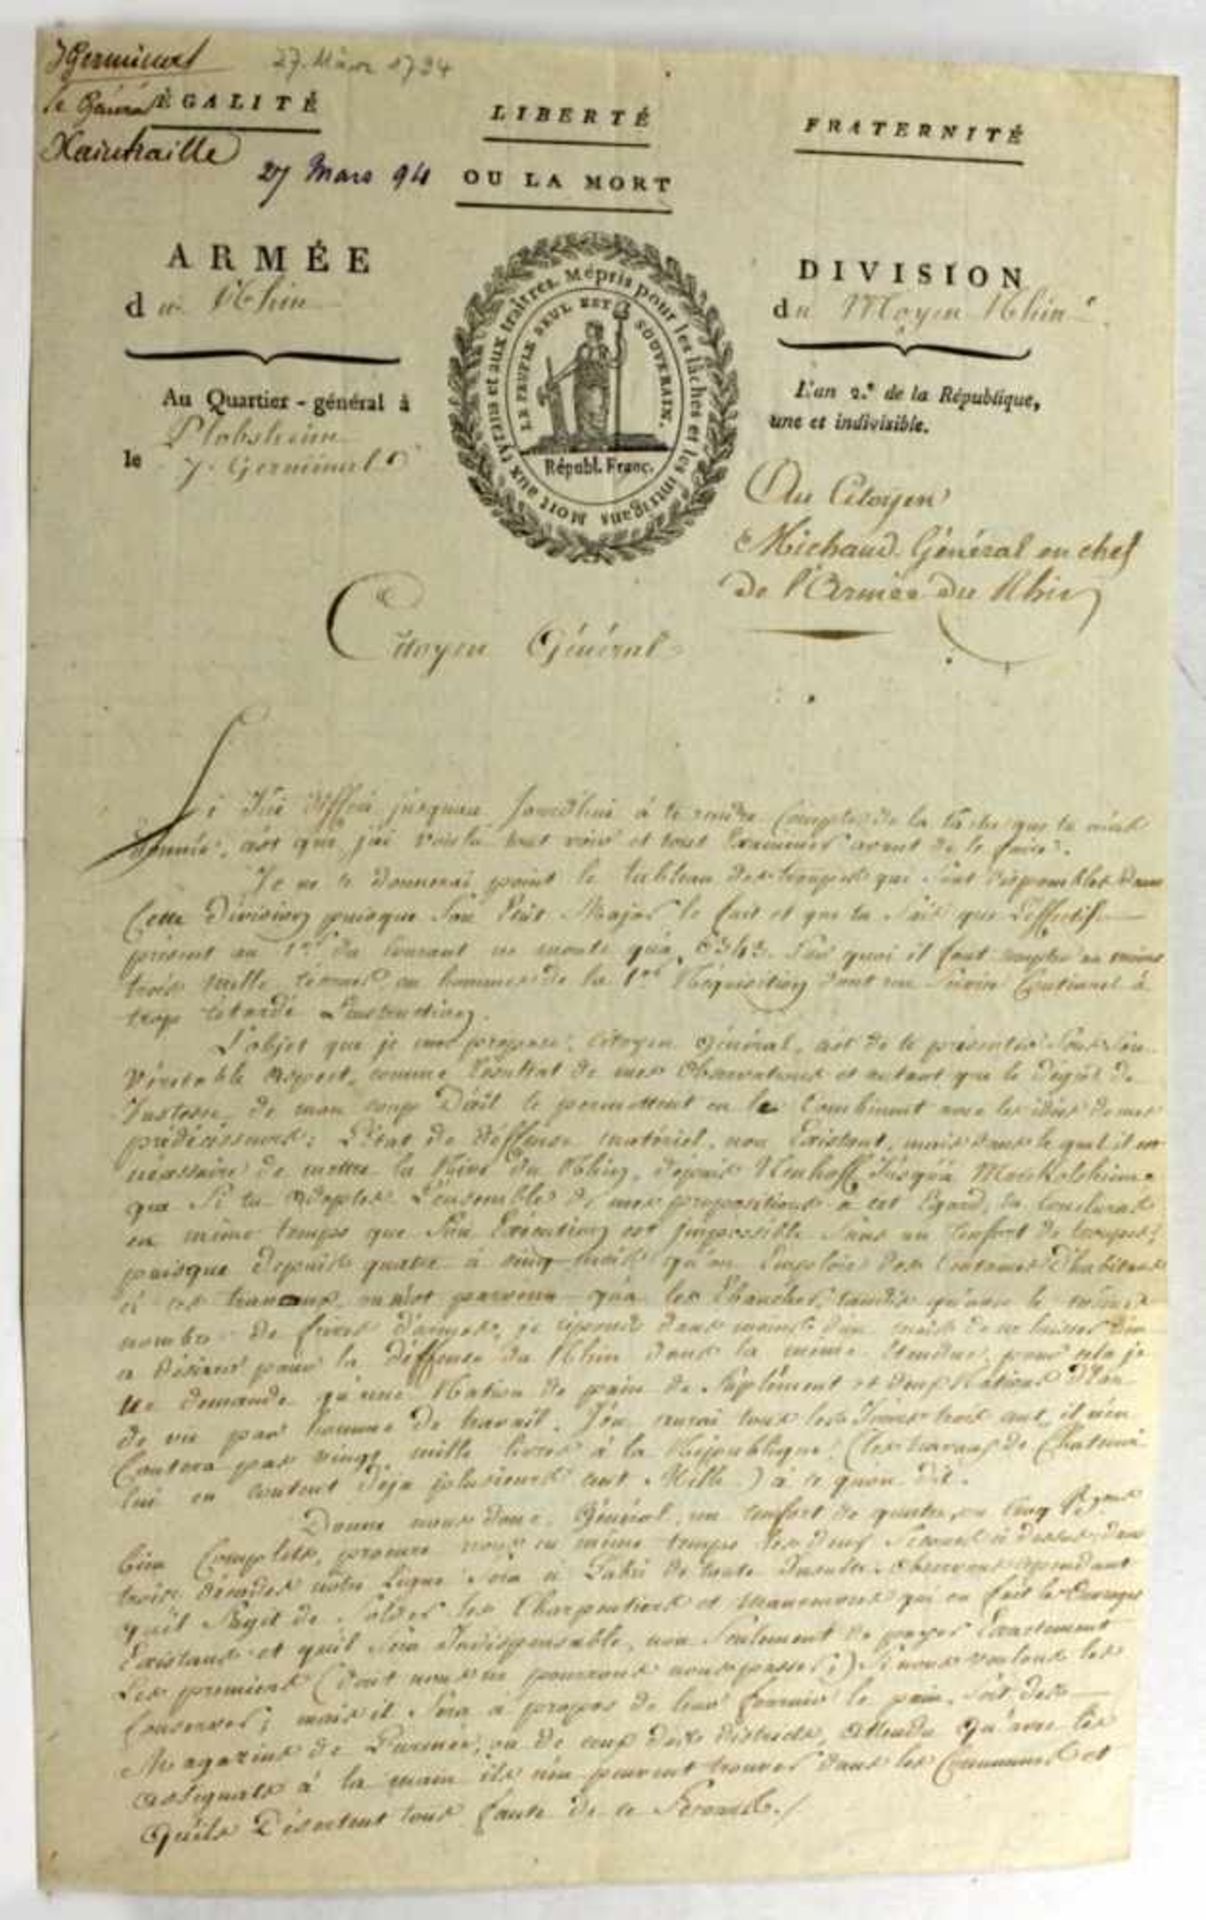 7 Germinal
27. März 1794
le Général
Xaintraille
27 Mars 94
ÉGALITÉ
LIBERTÉ
OU LA MORT
FRATERNITÉ
ARMÉE
du Rhin
DIVISION
du Moyen Rhin
Mort aux tyrans et aux traîtres. Mépris pour les lâches et les intrigans
LE PEUPLE SEUL EST SOUVERAIN.
Républ. Franç.
Au Quartier-général à
Plobsheim
le 7. Germinal
L'an 2.e de la République,
une et indivisible.
Au Citoyen
Michaud Général en chef
de l'Armée du Rhin
Citoyen Général
Si J'ai différé jusquau à te rendre Compte de la tâche que tu m'as
donnée, cest que j'ai voulu tout voir et tout Examiner avant de le faire.
Je ne te donnerai point le tableau des troupes qui sont disponibles dans
Cette Division puisque Son État Major le fait et que tu Sais que L'effectif
présent au 1er du Courant ne monte qu'à 6343. Sur quoi il faut compter au moins
trois mille hommes de la 1ere Réquisition dont un Service Continuel à
trop retardé L'instruction.
L'objet que je me propose, Citoyen Général, est de te présenter Sous Son
Véritable aspect, comme Résultat de mes Observations et autant que le degré de
Justesse de mon coup D'œil le permettent en les Combinant avec les idées de mes
prédécesseurs: L'état de déffense matériel, non Existant, mais dans lequel il est
nécessaire de mettre la Rive du Rhin, depuis Neuhoff Jusqu'à Marckolsheim
que Si tu adoptes L'ensemble de mes propositions à cet Égard, tu Concluras
en même temps que Son Exécution est impossible Sans un Renfort de troupes
puisque depuis quatre à cinq mois qu'on Emploie des Centaines D'habitans
à ces travaux, on n'est parvenu qu'à les Ébaucher, tandis qu'avec le même
nombre de frères d'armes, je réponds dans moins d'un mois de ne laisser rien
a désirer pour la déffense du Rhin dans la même Étendue, pour cela je
ne demande qu'une Ration de pain de Suplément et deux Rations D'Eau
de vie par homme de travail. J'en aurai tous les Jours trois cent, il n'en
Coutera pas vingt mille livres à la République, (les travaux de
lui en coutent déja plusieurs cent Mille) à ce qu'on dit.
Donne nous donc, Général, un renfort de quatre ou Cinq
bien Complets, procure nous en même temps les deux Secours ci dessus, dans
trois décades notre Ligne Sera à L'abri de toute Insulte. Observons cependant
quil Sagit de Solder les Charpentiers et manœuvres qui on fait les Ouvrages
Existans et quil Sera Indispensable, non Seulement de payer Exactement
Les premiers (dont nous ne pourrons nous passer;) Si nous voulons les
Conserver; mais il Sera à propos de leur fournir le pain, soit des
Magazins de L'armée, ou de ceux des districts, attendu qu'avec les
assignats à la main ils n'en peuvent trouver dans les Communes et
Qu'ils Désertent tous faute de ce Secours./